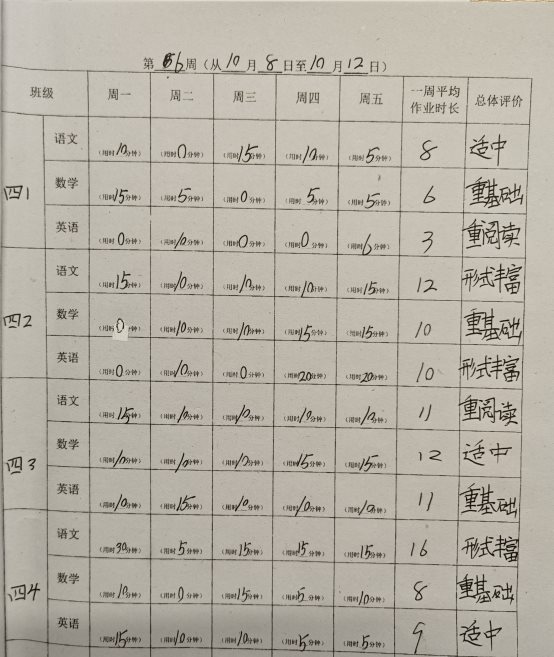 第 6 周（从 10 月 8 日至 10 月 12 日）
班级 周一 周二 周三 周四 周五 一周平均作业时长 总体评价
四1 语文 （用时10分钟） （用时0分钟） （用时15分钟） （用时10分钟） （用时5分钟） 8 适中
数学 （用时15分钟） （用时5分钟） （用时0分钟） （用时5分钟） （用时5分钟） 6 重基础
英语 （用时0分钟） （用时10分钟） （用时0分钟） （用时0分钟） （用时6分钟） 3 重阅读
四2 语文 （用时15分钟） （用时10分钟） （用时10分钟） （用时10分钟） （用时15分钟） 12 形式丰富
数学 （用时0分钟） （用时10分钟） （用时10分钟） （用时15分钟） （用时15分钟） 10 重基础
英语 （用时0分钟） （用时10分钟） （用时0分钟） （用时20分钟） （用时20分钟） 10 形式丰富
四3 语文 （用时15分钟） （用时10分钟） （用时10分钟） （用时10分钟） （用时10分钟） 11 重阅读
数学 （用时10分钟） （用时10分钟） （用时10分钟） （用时15分钟） （用时15分钟） 12 适中
英语 （用时10分钟） （用时15分钟） （用时10分钟） （用时10分钟） （用时10分钟） 11 重基础
四4 语文 （用时30分钟） （用时5分钟） （用时15分钟） （用时15分钟） （用时15分钟） 16 形式丰富
数学 （用时10分钟） （用时0分钟） （用时15分钟） （用时5分钟） （用时10分钟） 8 重基础
英语 （用时15分钟） （用时10分钟） （用时10分钟） （用时5分钟） （用时5分钟） 9 适中